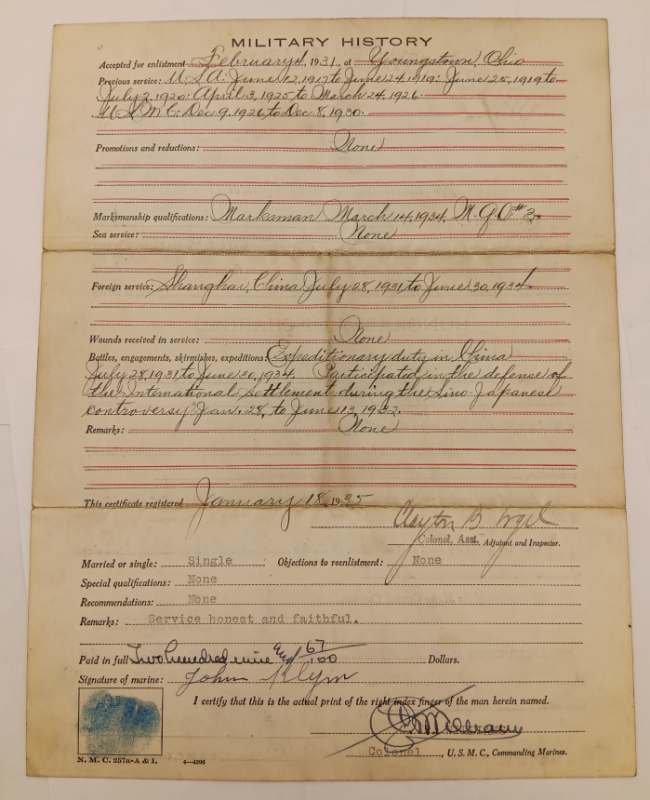 MILITARY HISTORY
Accepted for enlistment February 4, 1931, at Youngstown, Ohio
Previous service: U.S.A. June 12, 1917 to June 24, 1919: June 25, 1919 to
July 2, 1920: April 3, 1925 to March 24, 1926.
U.S.M.C: Dec 9, 1926, to Dec 8, 1930.
Promotions and reductions: None
Marksmanship qualifications: Marksman March 14, 1934, M.G.O. # 2.
Sea service: None
Foreign service: Shanghai, China July 28, 1931, to June 30, 1934.
Wounds received in service: None
Battles, engagements, skirmishes, expeditions: Expeditionary duty in China
July 28, 1931 to June 30, 1934. Participated in the defense of
the International Settlement during the Sino-Japanese
controversy Jan. 28, to June 13, 1932.
Remarks: None
This certificate registered January 18, 1935
Clayton B. Vogel
Colonel, Asst. Adjutant and Inspector.
Married or single: Single Objections to reenlistment: None
Special qualifications: None
Recommendations: None
Remarks: Service honest and faithful.
Paid in full Two hundred nine and 67/100 Dollars.
Signature of marine: John Klym
I certify that this is the actual print of the right index finger of the man herein named.
Colonel, U. S. M. C., Commanding Marines.
N. M. C. 257a-A & I.